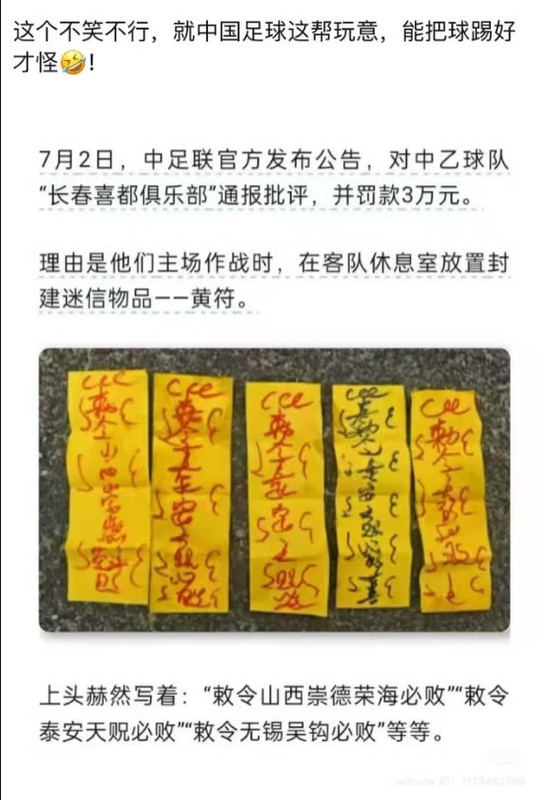 这个不笑不行，就中国足球这帮玩意，能把球踢好
才怪🤣！
7月2日，中足联官方发布公告，对中乙球队
“长春喜都俱乐部”通报批评，并罚款3万元。
理由是他们主场作战时，在客队休息室放置封
建迷信物品——黄符。
上头赫然写着：“敕令山西崇德荣海必败”“敕令
泰安天贶必败”“敕令无锡吴钩必败”等等。